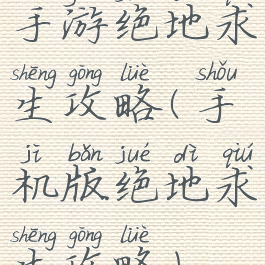 手游绝地求
shēng gōng lüè shǒu
生攻略(手
jī bǎn jué dì qiú
机版绝地求
shēng gōng lüè
生攻略)